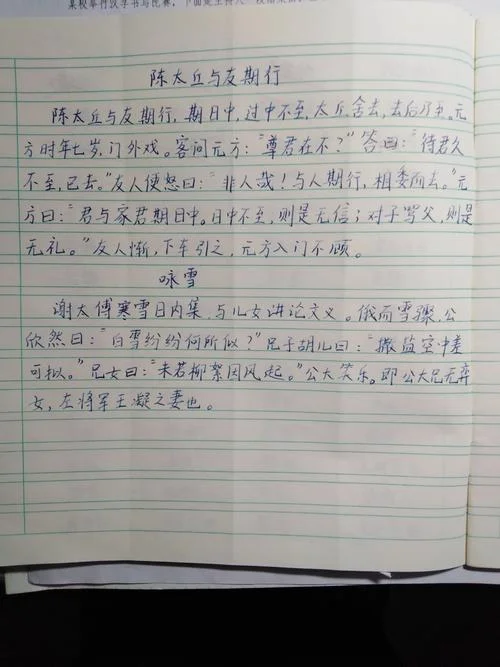 陈太丘与友期行
陈太丘与友期行，期日中，过中不至，太丘舍去，去后乃至。元
方时年七岁，门外戏。客问元方："尊君在不？"答曰："待君久
不至，已去。"友人便怒曰："非人哉！与人期行，相委而去。"元
方曰："君与家君期日中。日中不至，则是无信；对子骂父，则是
无礼。"友人惭，下车引之，元方入门不顾。
咏雪
谢太傅寒雪日内集，与儿女讲论文义。俄而雪骤，公
欣然曰："白雪纷纷何所似？"兄子胡儿曰："撒盐空中差
可拟。"兄女曰："未若柳絮因风起。"公大笑乐。即公大兄无弈
女，左将军王凝之妻也。